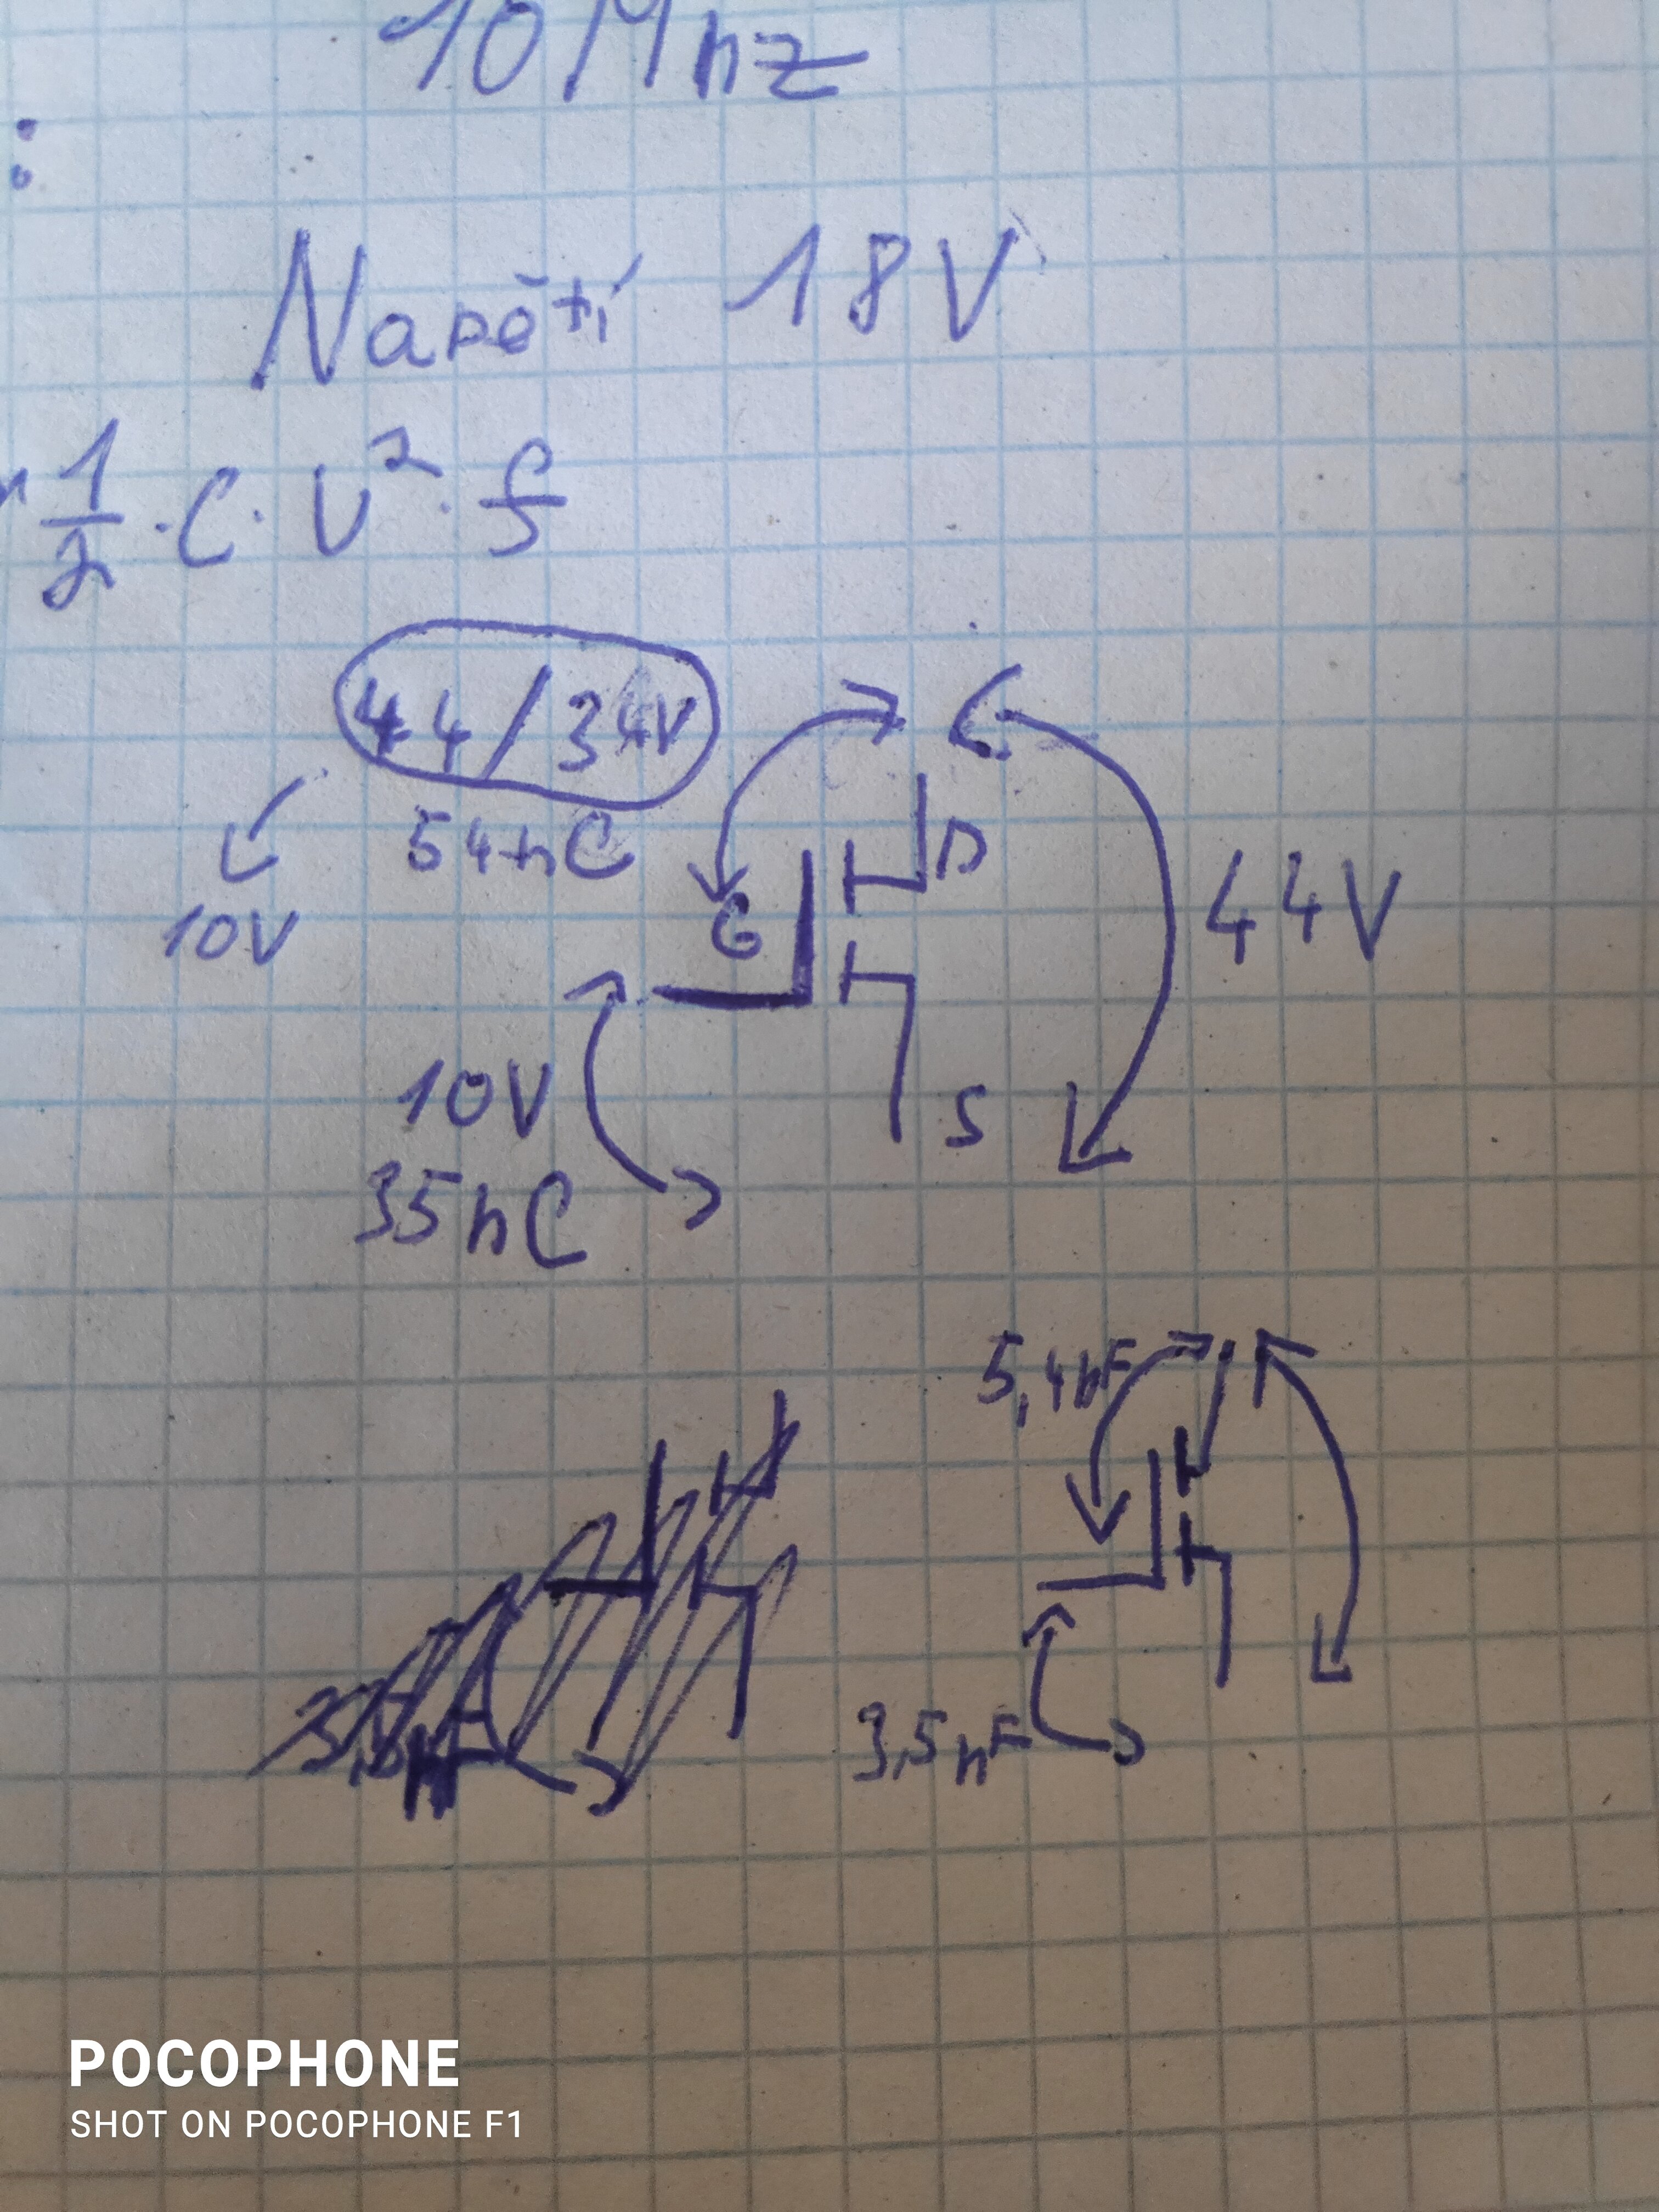 10Mhz
:
Napětí 18V
1/2 · C · U² · f
44/34V
54nC
10V
G
D
44V
10V
35nC
S
5,4nF
3,5nF
POCOPHONE
SHOT ON POCOPHONE F1